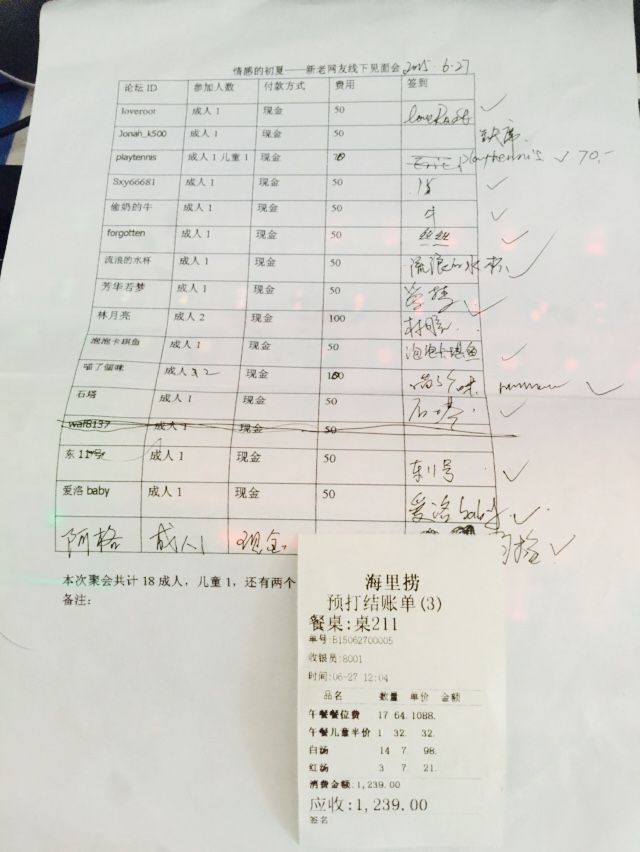 情感的初夏——新老网友线下见面会 2015.6.27
论坛 ID 参加人数 付款方式 费用 签到
loveroot 成人 1 现金 50
Jonah_k500 成人 1 现金 50 缺席
playtennis 成人 1 儿童 1 现金 70 Eric playtennis 70.-
Sxy66681 成人 1 现金 50
偷奶的牛 成人 1 现金 50 牛
forgotten 成人 1 现金 50 丝丝
流浪的水杯 成人 1 现金 50 流浪的水杯
芳华若梦 成人 1 现金 50
林月亮 成人 2 现金 100
泡泡卡琪鱼 成人 1 现金 50 泡泡卡琪鱼
喵了個咪 成人 2 现金 100
石塔 成人 1 现金 50 石塔
waf8137 成人 1 现金 50
东 11 号 成人 1 现金 50 东11号
爱洛 baby 成人 1 现金 50 爱洛baby
阿格 成人1 现金
本次聚会共计 18 成人，儿童 1，还有两个
备注：
海里捞
预打结账单(3)
餐桌:桌211
单号:B15062700005
收银员:8001
时间:06-27 12:04
品名 数量 单价 金额
午餐餐位费 17 64. 1088.
午餐儿童半价 1 32. 32.
白汤 14 7 98.
红汤 3 7 21.
消费金额:1,239.00
应收:1,239.00
签名